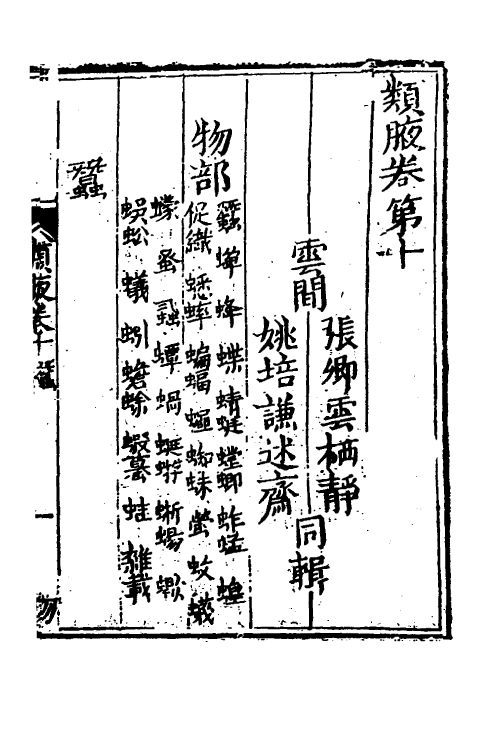 類腋卷第十
張卿雲栖靜
雲間 同輯
姚培謙述齋
物部
蠶 蟬 蜂 蝶 蜻蜓 螳螂 蚱蜢 蝗
促織 蟋蟀 蝙蝠 蠅 蜘蛛 螢 蚊 蟻
蠓 蚤 蝨 蟫 蝸 蜥蜴
蜈蚣 蟻 蚓 蟾蜍 蝦蟇 蛙 雜載
蠶
類腋卷十 蠶 一 物